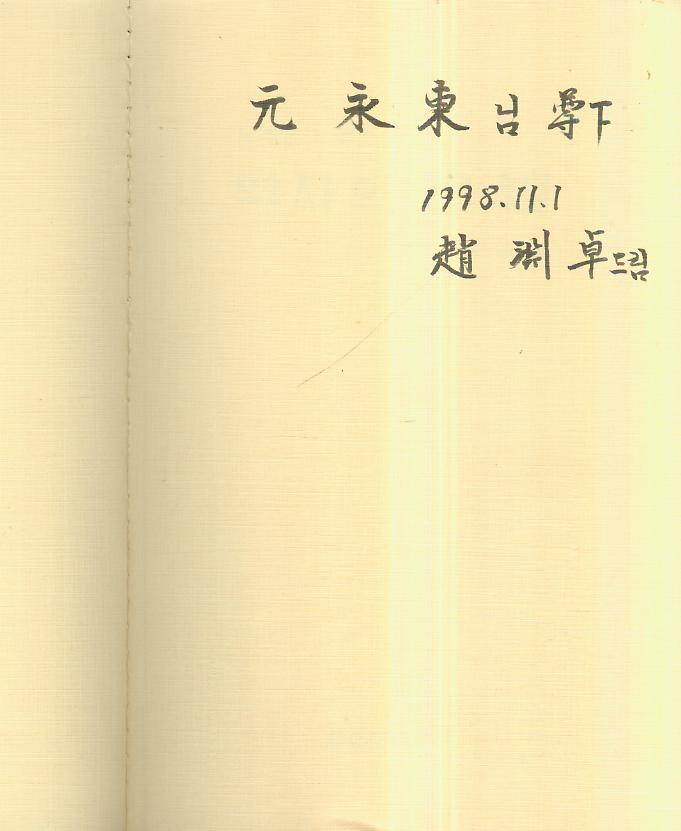 元 永 東 님 尊下
1998.11.1
趙 淵 卓 드림